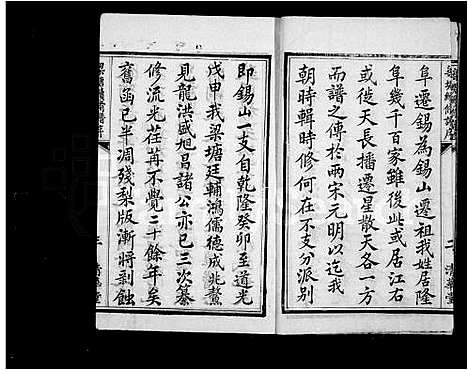 阜遷錫為錫山遷祖我姓居隆
阜幾千百家雖後此或居江右
或徙天長播遷星散天各一方
而譜之傳於兩宋元明以迄我
朝時輯時修何在不支分派別
二
清華堂
即錫山一支自乾隆癸卯至道光
戊申我梁塘廷輔鴻儒德成兆鰲
見龍洪盛旭昌諸公亦已三次纂
修流光荏苒不覺三十餘年矣
舊函已半凋殘梨版漸將剝蝕
三